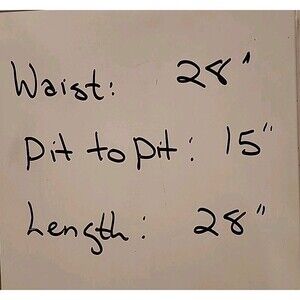 Waist: 28"
Pit to pit: 15"
Length: 28"